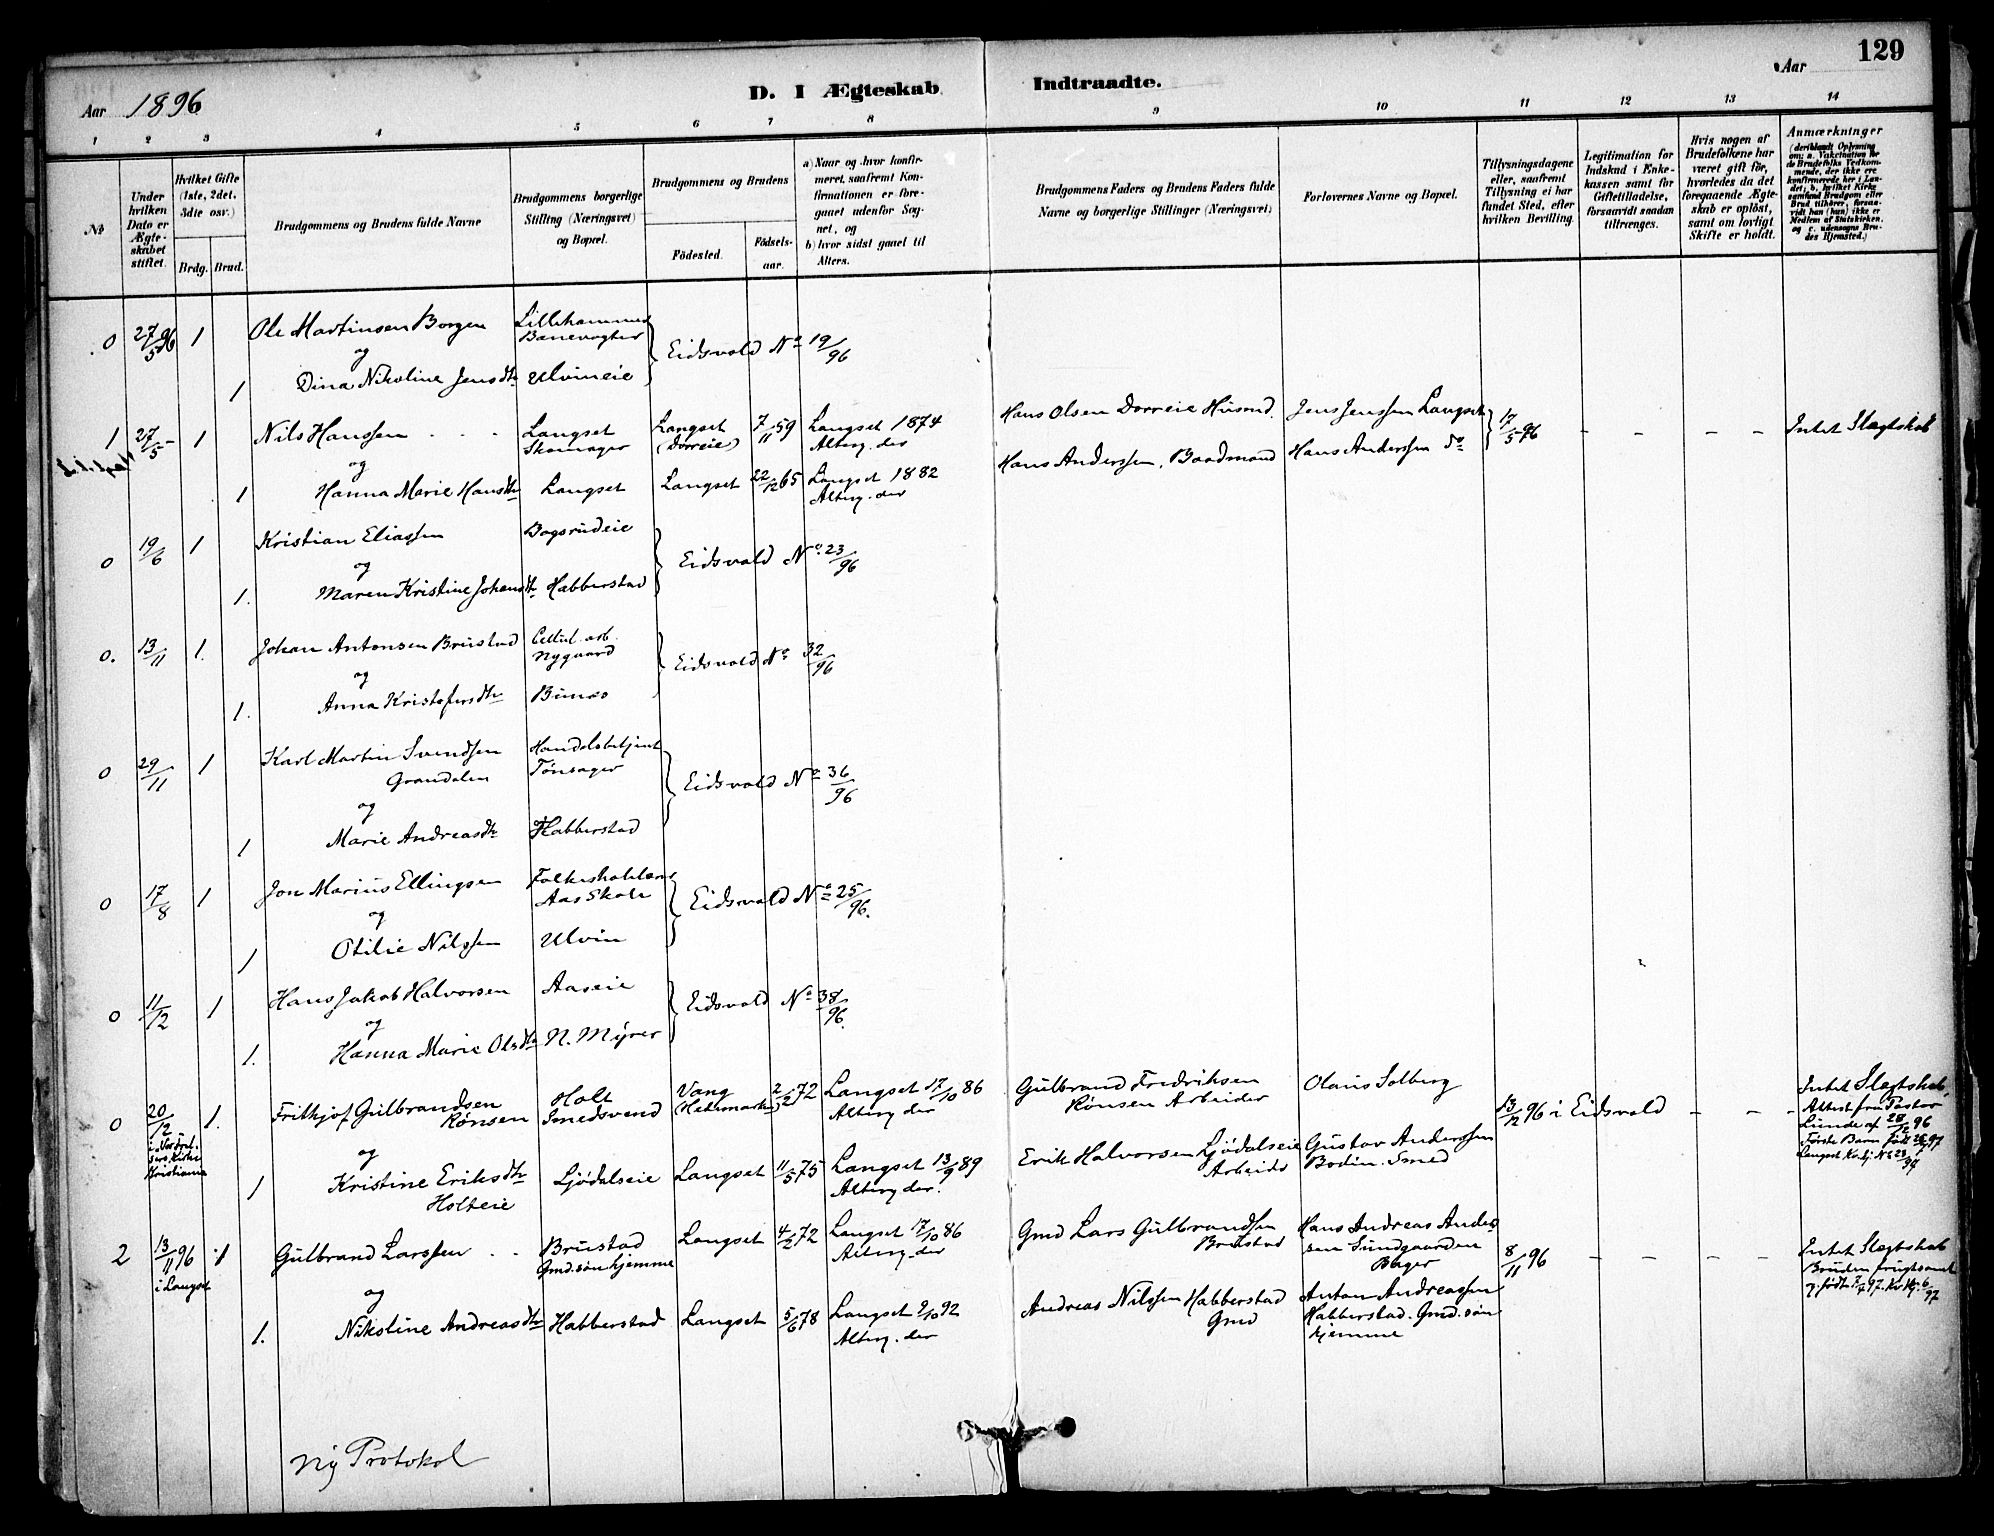 129
Aar 1896
D. I Ægteskab Indtraadte.
Aar
1 2 3 4 5 6 7 8 9 10 11 12 13 14
№
Under hvilken Dato er Ægteskabet stiftet.
Hvilket Gifte (1ste, 2det, 3dte osv.)
Brdg. Brud.
Brudgommens og Brudens fulde Navne
Brudgommens borgerlige Stilling (Næringsvei) og Bopæl.
Brudgommens og Brudens
Födested.
Födselsaar.
a) Naar og hvor konfirmeret, saafremt Konfirmationen er foregaaet udenfor Sognet, og
b) hvor sidst gaaet til Alters.
Brudgommens Faders og Brudens Faders fulde Navne og borgerlige Stillinger (Næringsvei)
Forlovernes Navne og Bopæl.
Tillysningsdagene eller, saafremt Tillysning ei har fundet Sted, efter hvilken Bevilling.
Legitimation for Indskud i Enkekassen samt for Giftetilladelse, forsaavidt saadan tiltrænges.
Hvis nogen af Brudefolkene har været gift för, hvorledes da det foregaaende Ægteskab er oplöst, samt om lovligt Skifte er holdt.
Anmærkninger
(deriblandt Oplysning om: a. Vakcination for de Brudefolks Vedkommende, der ikke ere konfirmerede her i Landet; b. hvilket Kirkesamfund Brudgom eller Brud tilhörer, forsaavidt han (hun) ikke er Medlem af Statskirken, og c. udensogns Brudes Hjemsted.)
0 27/5 96 1 Ole Martinsen Borgen Lillehammer
Banevogter
og Eidsvold No 19/96
1 Dina Nikoline Jensdtr Ulvineie
1 27/5 1 Nils Hanssen Langset Langset 7/11 59 Langset 1874 Hans Olsen Dorreie Husmd. Jens Jenssen Langset 17/5 96 - - - - Intet Slægtskab
Skomager (Dorreie) Alterg. der
og Hans Anderssen, Baadmand Hans Anderssen So
1 Hanna Marie Hansdtr Langset Langset 22/12 65 Langset 1882
Alterg. der
0 19/6 1 Kristian Eliassen Bogsrudeie
og Eidsvold No. 23/96
1. Maren Kristine Johansdtr Habberstad
0. 13/11 1. Johan Antonsen Brustad Cellul. arb.
Nygaard
og Eidsvold No 32/96
1. Anna Kristofersdtr Bunes
0 29/11 1 Karl Martin Svendsen Handelsbetjent
Grandalen Tønsager
og Eidsvold No 36/96
1 Marie Andreasdtr Habberstad
0 17/8 1 Jon Marius Ellingsen Folkeskolelærer
Aas Skole
og Eidsvold No 25/96.
1 Otilie Nilssen Ulvin
0 11/12 1 Hans Jakob Halvorsen Aaseie
og Eidsvold No 38/96.
1. Hanna Marie Olsdtr N. Myrer
0 20/12 1. Frithjof Gulbrandsen Holt Vang 2/2 72 Langset 17/10 86 Gulbrand Fredriksen Olaus Solberg 13/12 96 i Eidsvold - - - Intet Slægtskab
Rønsen Smedsvend (Hedemarken) Alterg. der Rønsen Arbeider Attest fra Pastor Lunde af 28/12 96
i Vor Frelsers Kirke Kristiania
Første Barn født
og Erik Halvorsen Ljödalseie Gustav Anderssen
1 Kristine Eriksdtr Ljödalseie Langset 11/5 75 Langset 13/9 89 Arbeids Bodin. Smed
Holteie Alterg. der.
2 13/11 96 1 Gulbrand Larssen Brustad Langset 4/2 72 Langset 17/10 86 Gmd Lars Gulbrandsen Hans Andreas Andersen Sundgaarden 8/11 96 - - - - Intet Slægtskab
i Langset Gmd.søn hjemme Alterg. der Brustad Bager Bruden frugtsomm.
og Andreas Nilssen Habberstad Anton Andreassen
1. Nikoline Andreasdtr Habberstad Langset 5/6 78 Langset 9/10 92 Gmd Habberstad. Gmd. søn
Alterg. der hjemme
Ny Protokol